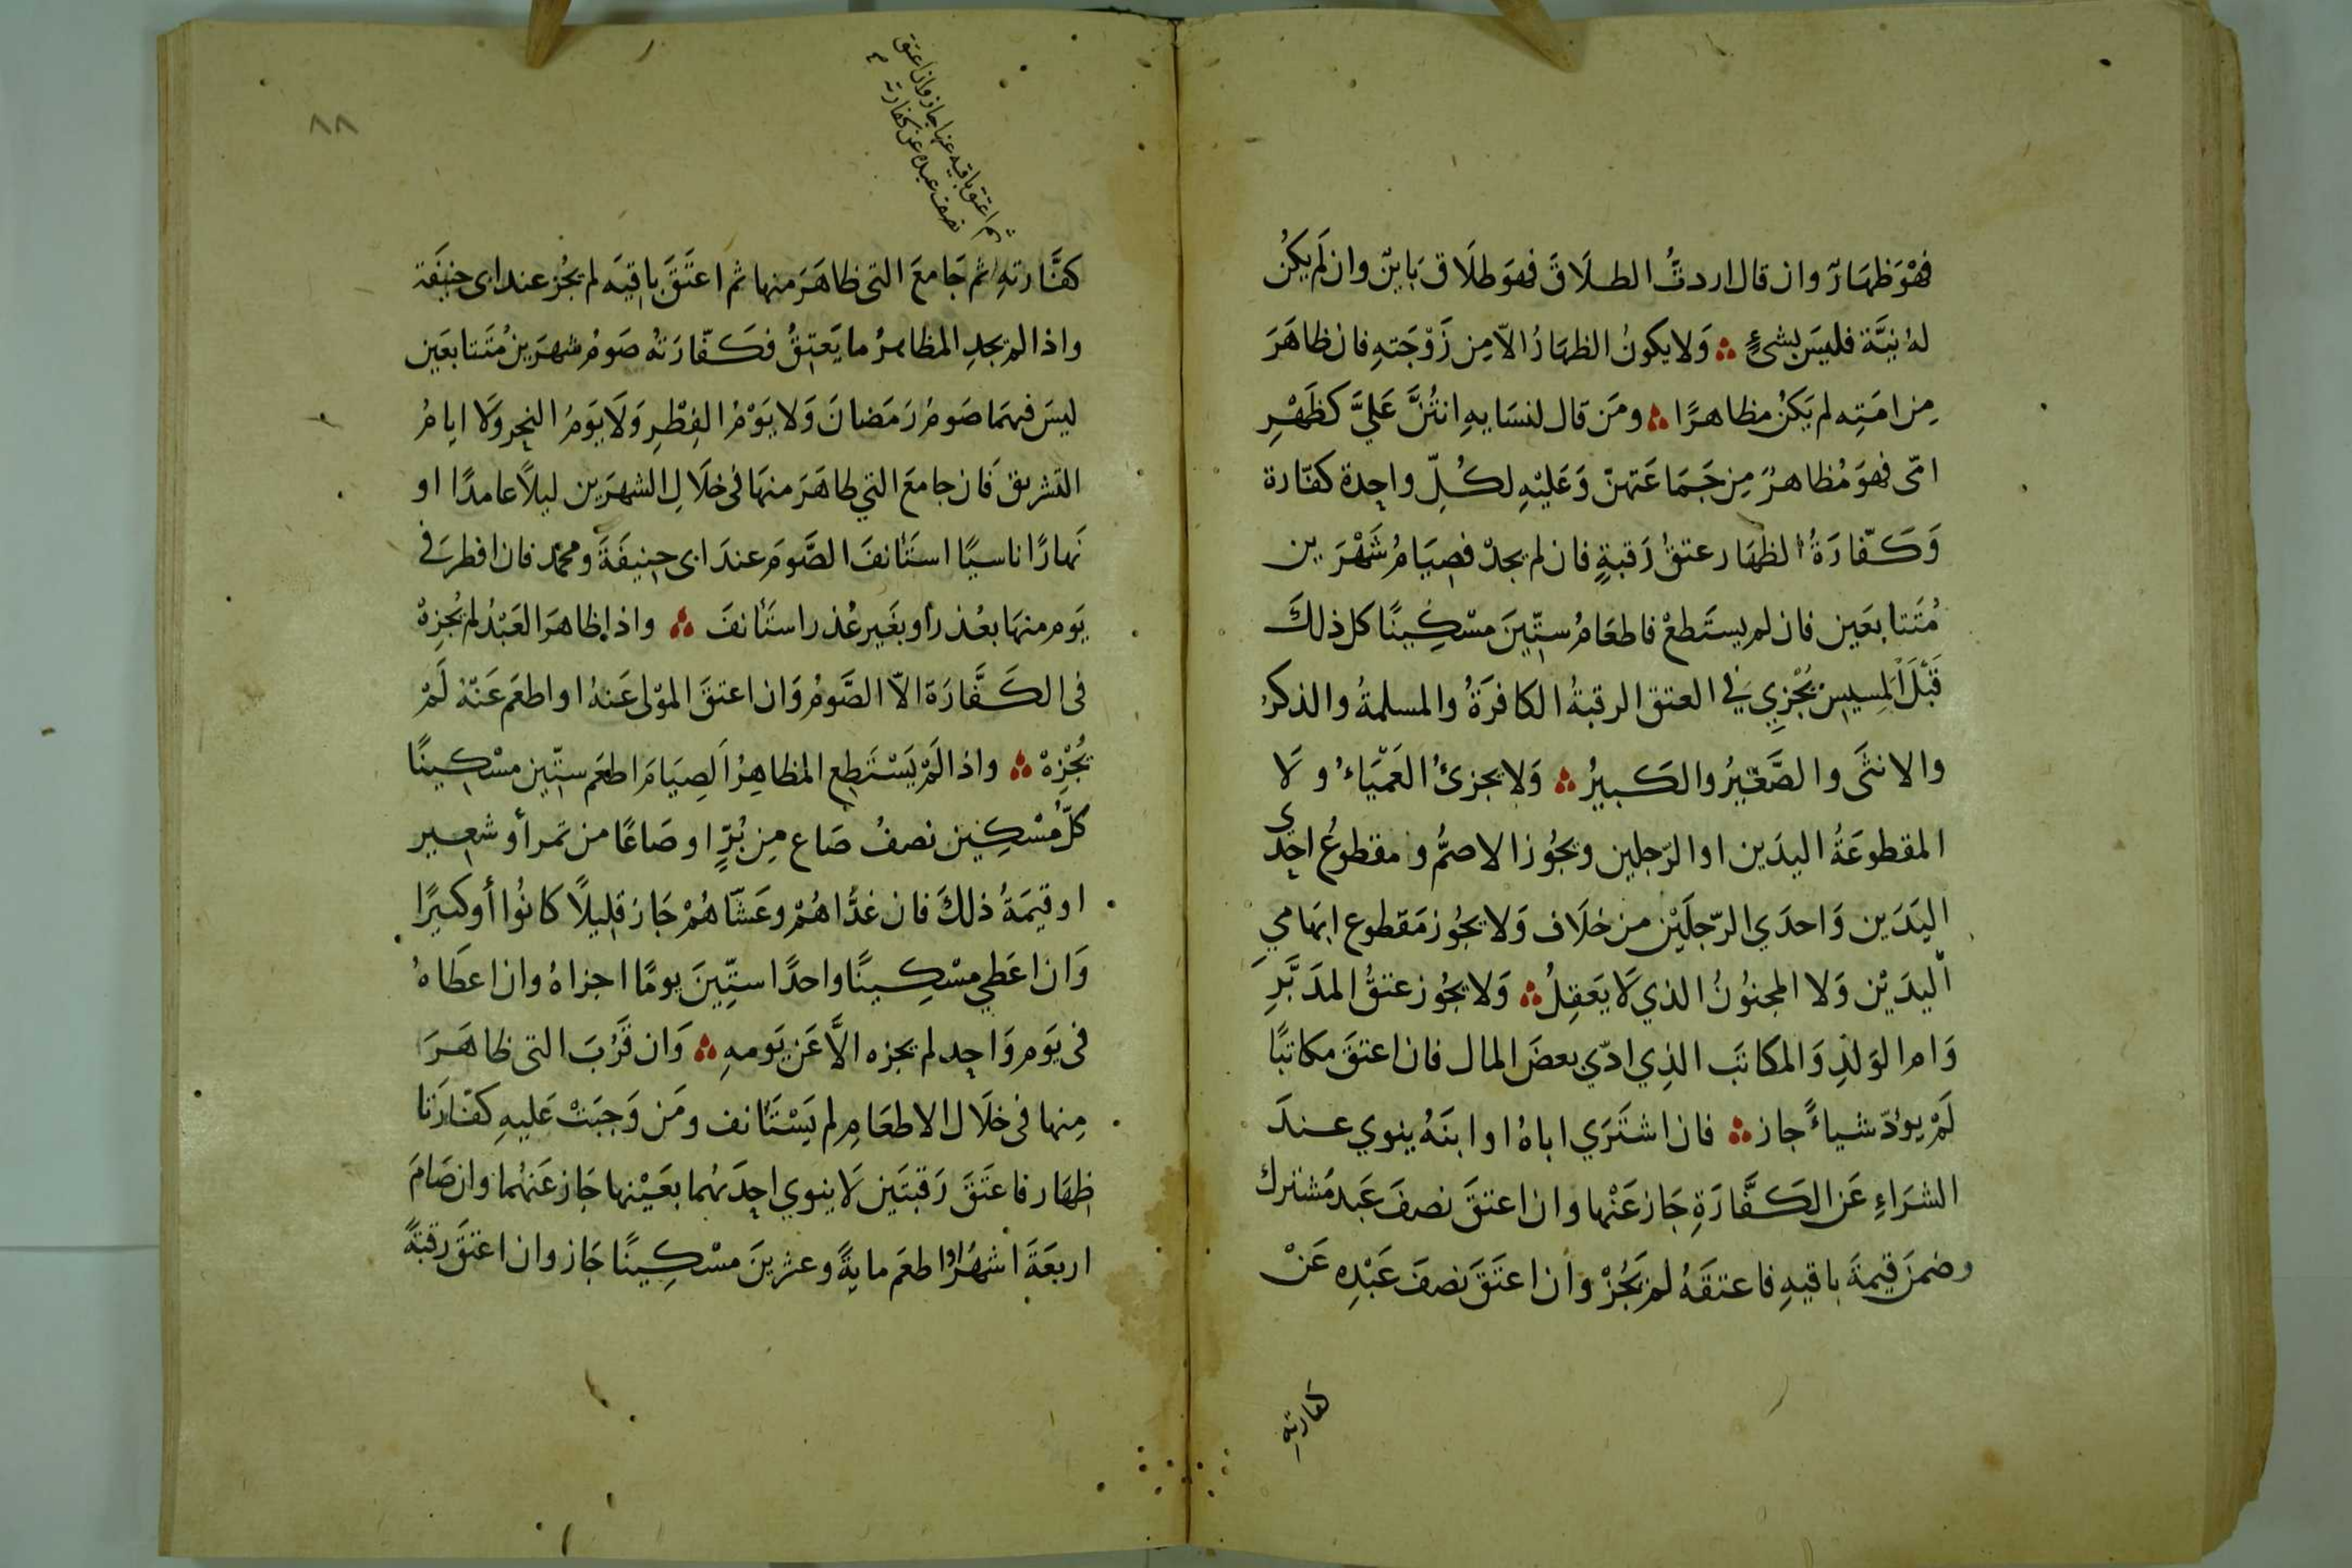 فهْوَ ظهَارٌ وان قال اردتُّ الطلَاقَ فهوَ طلَاق بَاينٌ وان لَم يكُن
لهُ نيَّة فليسَ بشئٍ ؞ وَلا يكونُ الظهَارُ الاّ مِن زَوْجَتهِ فان ظاهَرَ
مِن امَتِه لم يَكنْ مظاهرًا ؞ ومَن قال لنسَايهِ انتُنَّ عَليَّ كظَهْرِ
امّى فهوَ مُظاهرٌ مِن جَمَاعَتهنّ وَعَليْهِ لكُلِّ واحِدة كفّارة
وَكَفّارَةُ الظهَار عتقُ رَقبةٍ فان لم يجدْ فصِيَامُ شَهْرَين
مُتَتابعَين فان لم يستَطعْ فاطعَامُ ستّينَ مسْكِينًا كل ذلكَ
قَبْلَ المَسِيسِ يُجْزِي في العتق الرقبةُ الكافرَةُ والمسلمةُ والذكرُ
والانثَى والصَّغيرُ والكَبيرُ ؞ وَلا يجزئُ العَمْيَاءُ ولَا
المقطوعَةُ اليدَين او الرّجلين ويجُوز الاصمُّ ومقطوعُ احِدى
اليَدَين وَاحدَي الرّجلَيْن من خلَاف وَلا يجُوز مَقطوع ابهَامي
اليدَيْن وَلا المجنوُنُ الذي لَا يَعَقِلُ ؞ وَلا يجُوز عتقُ المدَبَّرِ
وَام الوَلدِ وَالمكاتبَ الذِي ادّي بعضَ المال فان اعتقَ مكاتبًا
لَمْ يودّ شياءً جاز ؞ فان اشتَرَي اباهُ او ابنَهُ ينوي عندَ
الشرَاءِ عَن الكَفَّارَةِ جَاز عَنْها وان اعتقَ نصفَ عَبد مُشترك
وضمنَ قيمةَ باقيهِ فاعتقَهُ لم يَجُزْ وَان اعتَقَ نصفَ عَبْدِه عَنْ
كفارتهِ
٨٨
ثم اعتق باقيه عنها جاز وان اعتق
نصف عبده عن كفارته
كفَّارتهِ ثم جَامعَ التى ظاهَرَ منها ثم اعتَقَ باقيَه لم يجُز عند ابى حنيفَة
واذا لم يجدِ المظاهرُ ما يَعتِقُ فكَفّارَتُه صَومُ شهرَين مُتَتابعَين
ليسَ فيهمَا صَومُ رَمَضانَ وَلا يَوْمُ الفِطْرِ وَلَا يَومُ النحِر وَلَا ايامُ
التشريق فَان جامعَ التي ظاهَرَ منهَا فى خلَالِ الشهرَين ليلاً عامدًا او
نَهارًا ناسيًا استَانفَ الصَّومَ عندَ ابى حنيفَةَ ومحمّد فان افطرَ في
يَوم منهَا بعُذر أو بغَير عُذر استَانفَ ؞ واذا ظاهَرَ العَبْدُ لم يُجزِهْ
فى الكَفَّارَة الاّ الصَّومُ وَان اعتقَ الموْلى عَنهُ او اطعَم عَنْهُ لَمْ
يُجْزِهْ ؞ واذا لَمْ يَسْتَطِعِ المظاهِرُ الصِيَامَ اطعَم ستّين مسْكينًا
كلّ مُسْكِين نصفُ صَاع مِن بُرٍّ او صَاعًا من تمر أو شعِير
او قيمَةُ ذلكَ فان غدَّاهُمْ وعَشّاهُمْ جَازَ قلِيلًا كانُوا أو كثيرًا
وَان اعَطي مسْكِينًا واحدًا ستّينَ يومًا اجزاهُ وان اعطَاهُ
فى يَوم وَاحِد لم يجزه الاَّ عَن يَومهِ ؞ وَان قَرُبَ التى ظاهَرَ
مِنها فى خلَال الاطعَامِ لم يَسْتَانف ومَن وَجبَتْ عَليهِ كفّارَتا
ظِهَار فاعتَقَ رَقبتَين لَا ينوي احِدَيهُما بعَيْنها جَاز عَنهُما وان صَامَ
اربعَةَ اشهُر او اطعَم مايةً وعشرينَ مسْكِينًا جَاز وان اعتَقَ رقبَةً